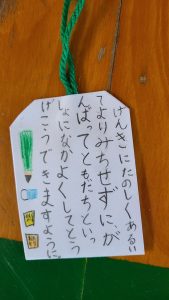 けんきにたのしくあるい
てよりみちせずにが
んばってともだちといっ
しょになかよくしてとう
げこうできますように。